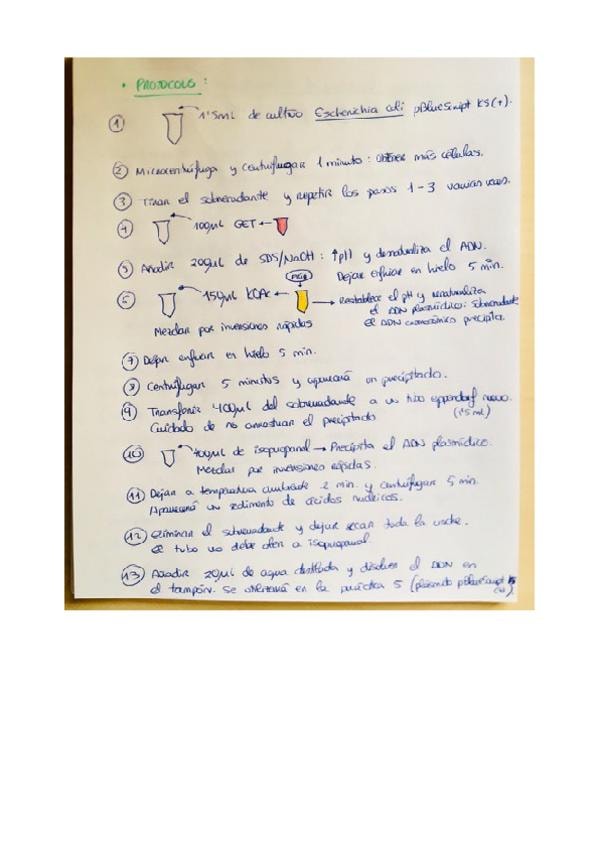 • PROTOCOLO:
① 1'5ml de cultivo Escherichia coli pBlueScript KS(+).
② Microcentrífuga y centrifugar 1 minuto: obtener más células.
③ Tirar el sobrenadante y repetir los pasos 1-3 varias veces.
④ 100μl GET
⑤ Añadir 200μl de SDS/NaOH: ↑pH y desnaturaliza el ADN.
Dejar enfriar en hielo 5 min.
⑥ 150μl KOAc → Restablece el pH y renaturaliza
el ADN plasmídico: sobrenadante
Mezclar por inversiones rápidas
el ADN cromosómico precipita.
⑦ Dejar enfriar en hielo 5 min.
⑧ Centrifugar 5 minutos y aparecerá un precipitado.
⑨ Transferir 400μl del sobrenadante a un tubo eppendorf nuevo.
(1'5 ml)
Cuidado de no arrastrar el precipitado
⑩ 400μl de isopropanol → Precipita el ADN plasmídico.
Mezclar por inversiones rápidas.
⑪ Dejar a temperatura ambiente 2 min. y centrifugar 5 min.
Aparecerá un sedimento de ácidos nucleicos.
⑫ Eliminar el sobrenadante y dejar secar toda la noche.
El tubo no debe oler a isopropanol.
⑬ Añadir 20μl de agua destilada y disolver el ADN en
el tampón. Se utilizará en la práctica 5 (plásmido pBlueScript KS
(+))